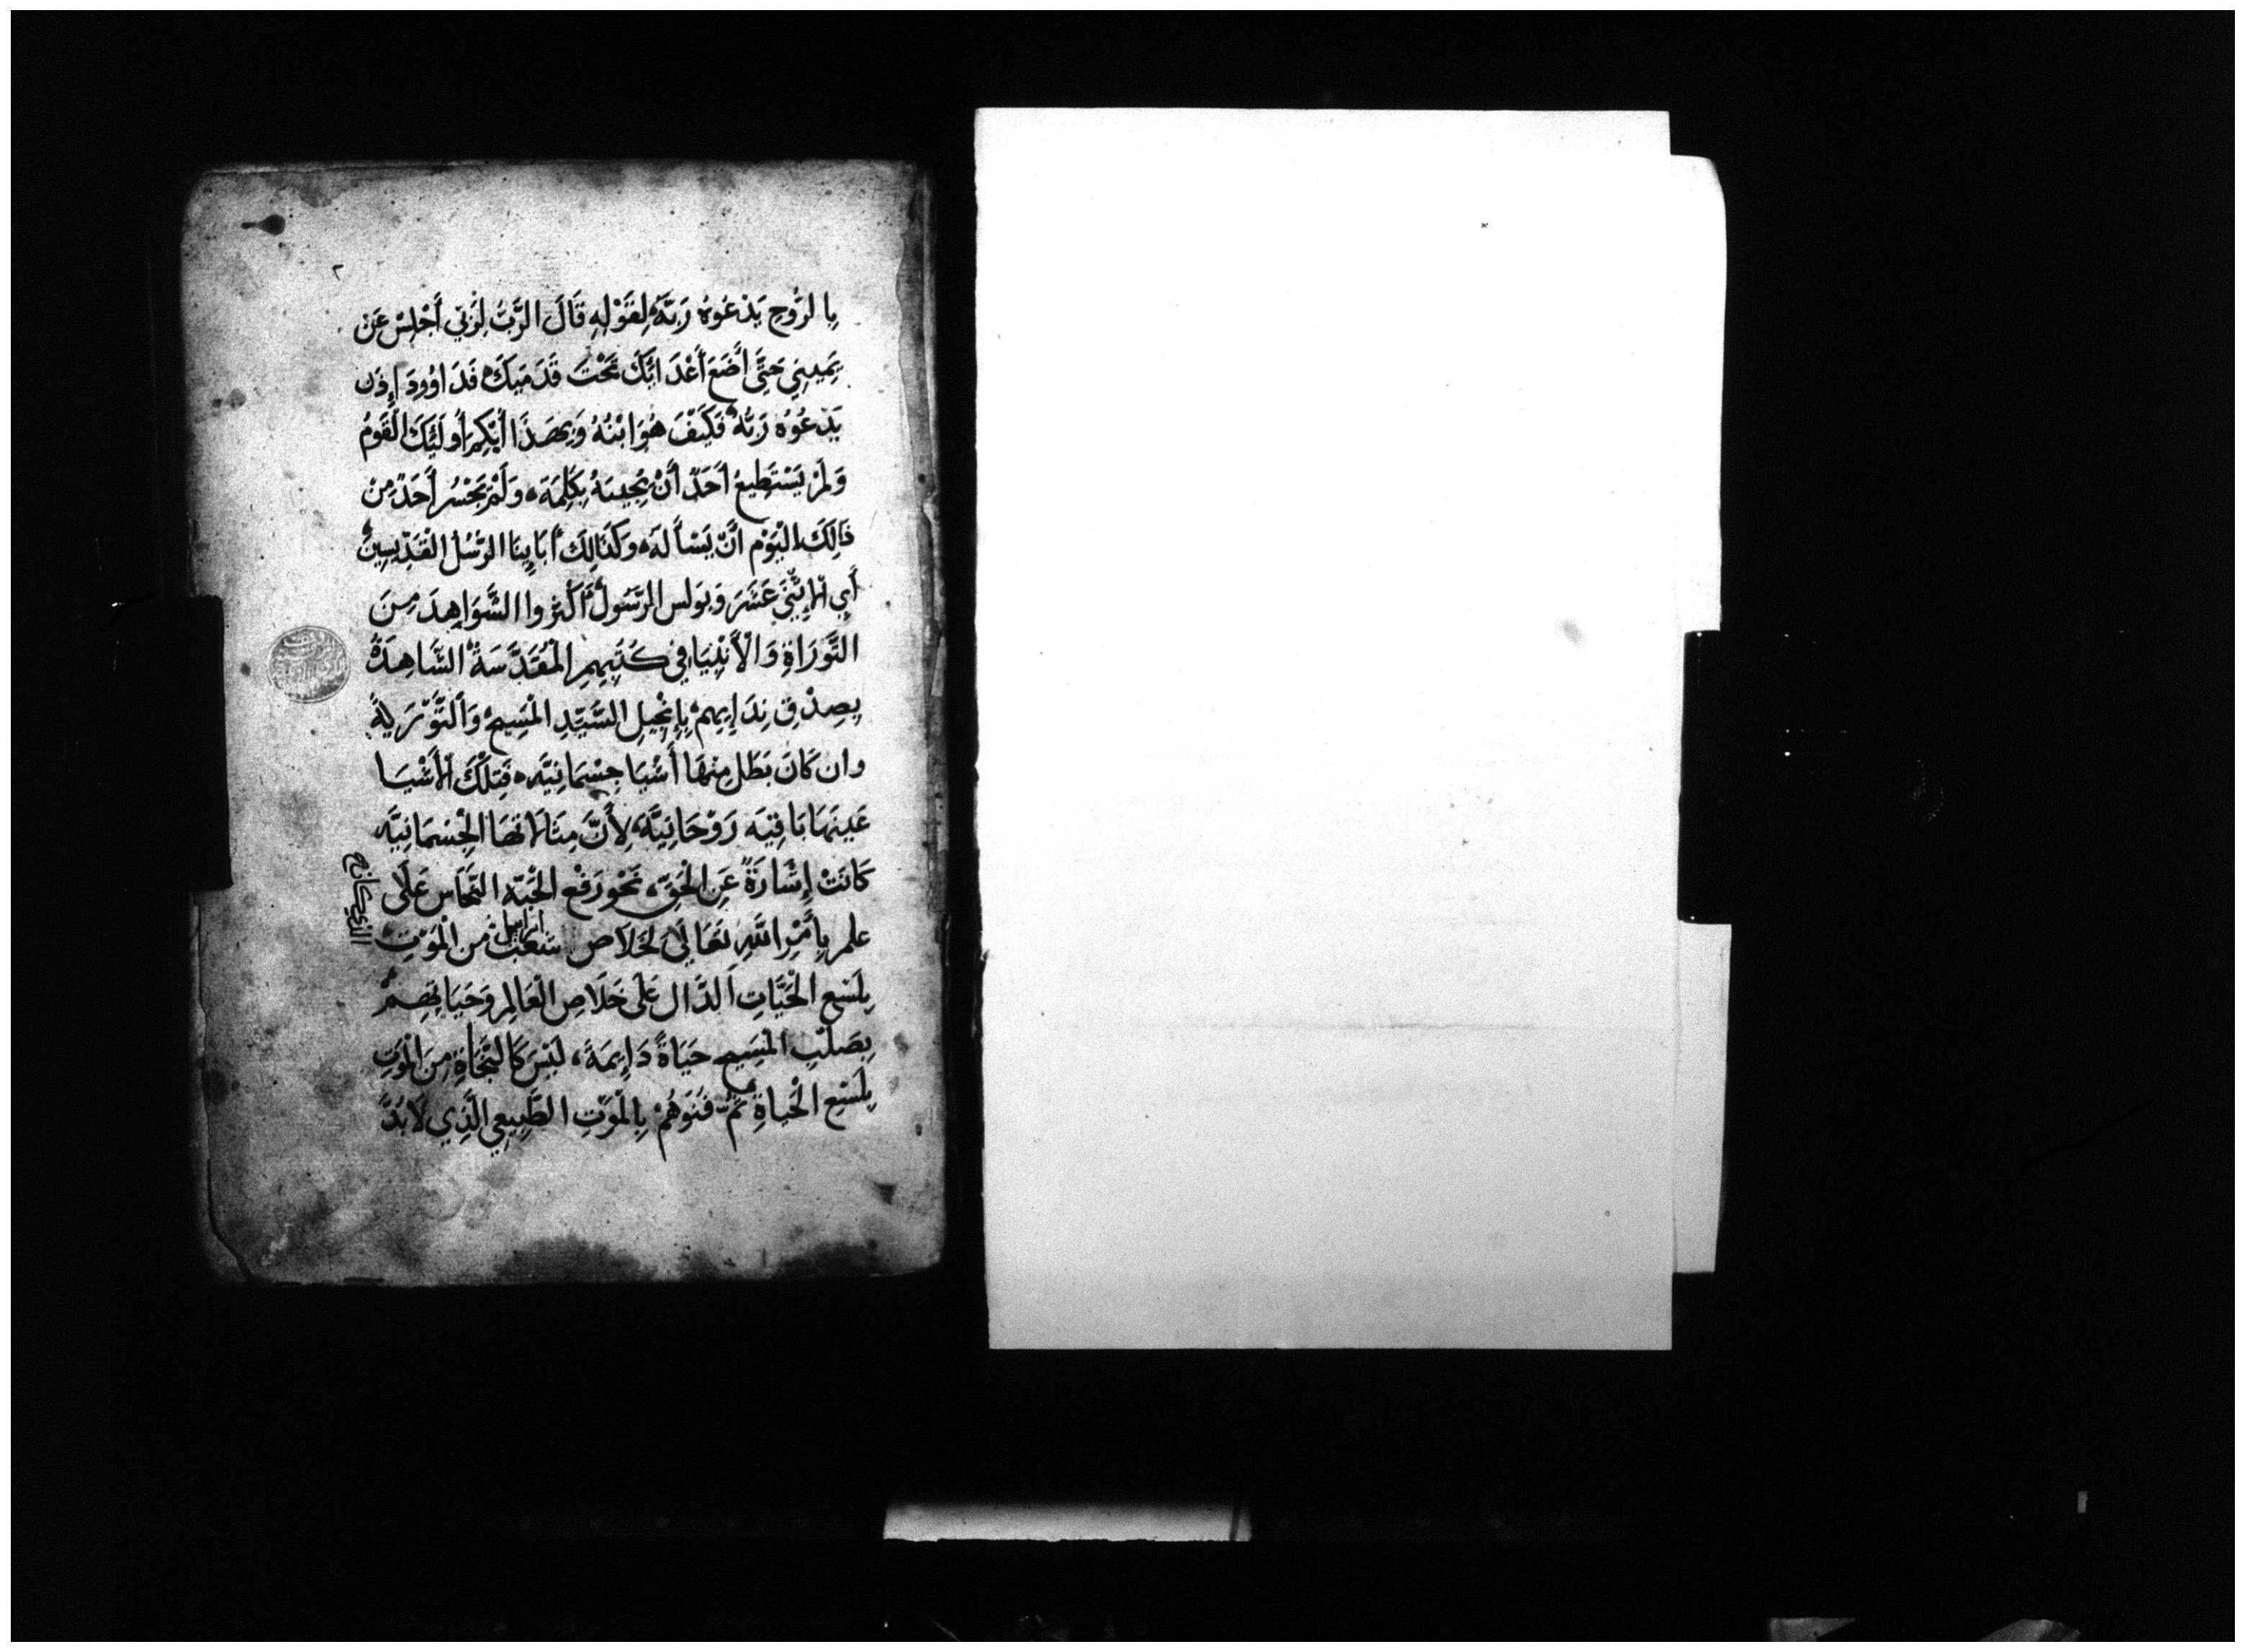 ٢
بِالرُّوحِ يَدْعُوهُ رَبَّهُ لِقَوْلِهِ قَالَ الرَّبُّ لِرَبِّي أَجْلِسْ عَن
يَمِينِي حَتَّى أَضَعَ أَعْدَائَكَ تَحْتَ قَدَمَيكَ فَدَاوُودَ إِذَن
يَدْعُوهُ رَبُّهُ فَكَيْفَ هُوَ ابْنُهُ وَبِهَذَا أُبْكِمَ أُولَئِكَ الْقَومُ
وَلَمْ يَسْتَطِيعُ أَحَدٌ أَنْ يُجِيبَهُ بِكَلِمَةٍ وَلَمْ يَجْسُر أَحَدٌ مِنْ
ذَالِكَ الْيَوْم أنْ يَسْأَلَهُ وَكَذَالِكَ أبَايِنَا الرُّسُل الْقِدِّيسِينْ
أَيِ الاِثْنَيْ عَشَرَ وَبَولس الرَّسُولُ أَكْثَروا الشَّوَاهِدَ مِنَ
التَّوْرَاةِ وَالْأَنْبِيَا فِي كُتُبِهِمِ الْمُقَدَّسَةْ الشَّاهِدَةُ
بِصِدْقِ نِدَايِهِمْ بِإِنْجِيلِ السَّيِّدِ الْمَسِيحْ وَالتَّوْرَيةُ
وان كَانَ بَطَل مِنْهَا أَشْيَا جِسْمَانِيَّه فَتِلْكَ الأَشْيَا
عَينهَا بَاقِيَه رَوْحَانِيَّةْ لِأَنَّ مِثَالاتهَا الْجِسْمَانِيَّه
كَانَتْ إِشَارَةً عَنِ الْحَقِّ، نَحْو رَفْع الْحَيَّه النُّحَاس عَلَى
علم بِأَمْرِ اللَّهِ تَعَالَى لخَلَاص شَعْب اسراييل مِن الْمَوْتِ
بِلَسْعِ الْحَيَّاتِ الدَّال عَلَى خَلَاصِ الْعَالِم وَحَيَاتِهِمْ
بِصَلْبِ الْمَسِيحِ حَيَاةً دَايِمَةً، لَيْسَ كَالنَّجَاةِ مِنَ الْمَوْتِ
بِلَسْعِ الْحَياةِ ثُمَّ فَنوهُمْ بِالْمَوْتِ الطَّبِيعِي الَّذِي لَا بُدَّ